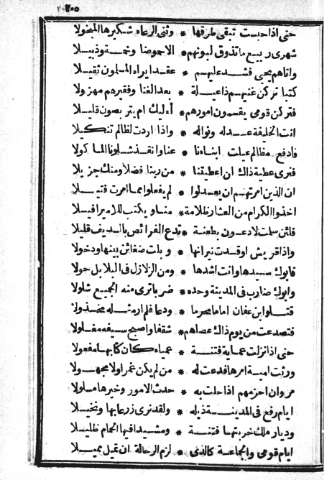 حتى اذا حبست تبقى طرقها * وثنى الرعاء شكيرها المنخولا
شهرى ربيع ما تذوق لبونهم * الا حموضا وخمة وذبيلا
واتاهم يحيى فشد عليهم * عقدا يراه المسلمون ثقيلا
كتبا تركن غنيهم ذا عيلة * بعد الغنا وفقيرهم مهزولا
فتركن قومى يقسمون امورهم * أاليك ام يتربصون قليلا
انت الخليفة عدله ونواله * واذا اردت لظالم تنكيلا
فادفع مظالم عيلت ابناءنا * عنا وانقذ شلونا الماكولا
فنرى عطية ذاك ان اعطيتنا * من ربنا فضلا ومنك جزيلا
ان الذين امرتهم ان يعدلوا * لم يفعلوا مما امرت فتيلا
اخذوا الكرام من العشار ظلامة * منا ويكتب للامير افيلا
فلئن سلمت لادعون بطعنة * تدع الفرائض بالشريف قليلا
واذا قريش اوقدت نيرانها * وبلت ضغائن بينها وذحولا
فابوك سيدها وانت اشدها * ومن الزلازل فى البلابل حولا
وابوك ضارب فى المدينة وحده * ضربا ترى منه الجميع شلولا
قتلوا ابن عفان اماما محرما * ودعا فلم ار مثله مخذولا
فتصدعت من يوم ذاك عصاهم * شققا واصبح سيفهم مفلولا
حتى اذا نزلت عماية فتنة * عمياء كان كتابها مفعولا
ورثت امية امرها فدعت له * من لم يكن غمرا ولا مجهولا
مروان احزمهم اذا حلت به * حدث الامور وخيرها مامولا
ايام رفع فى المدينة ذيله * ولقد نرى زرعا بها ونخيلا
وديار ملك خربتها فتنة * ومشيدا فيه الحمام ظليلا
ايام قومى والجماعة كالذى * لزم الرحالة ان تميل مميلا